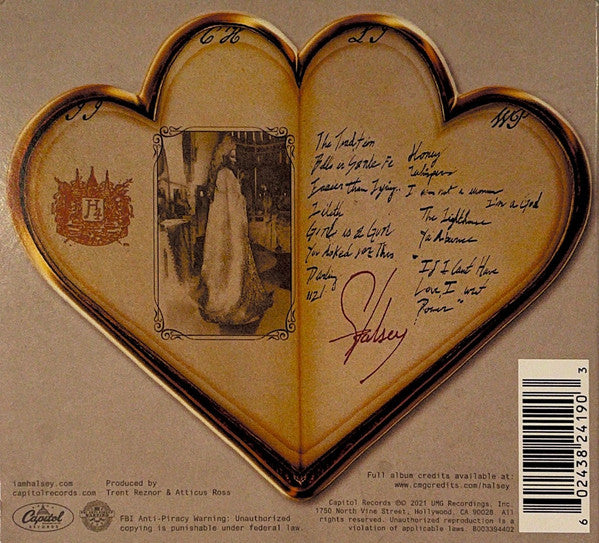 I I
C H
L I
W P
The Tradition
Bells in Santa Fe
Easier than Lying
Lilith
Girl is a Gun
You Asked For This
Darling
1121
Honey
Whispers
I am not a woman
I'm a God
The Lighthouse
Ya'aburnee
"If I Can't Have
Love, I want
Power"
Halsey
H4
iamhalsey.com
capitolrecords.com
Produced by
Trent Reznor & Atticus Ross
Full album credits available at:
www.cmgcredits.com/halsey
Capitol RECORDS
FBI Anti-Piracy Warning: Unauthorized
copying is punishable under federal law.
Capitol Records ©℗ 2021 UMG Recordings, Inc.
1750 North Vine Street, Hollywood, CA 90028. All
rights reserved. Unauthorized reproduction is a
violation of applicable laws. B003394402
6 02438 24190 3